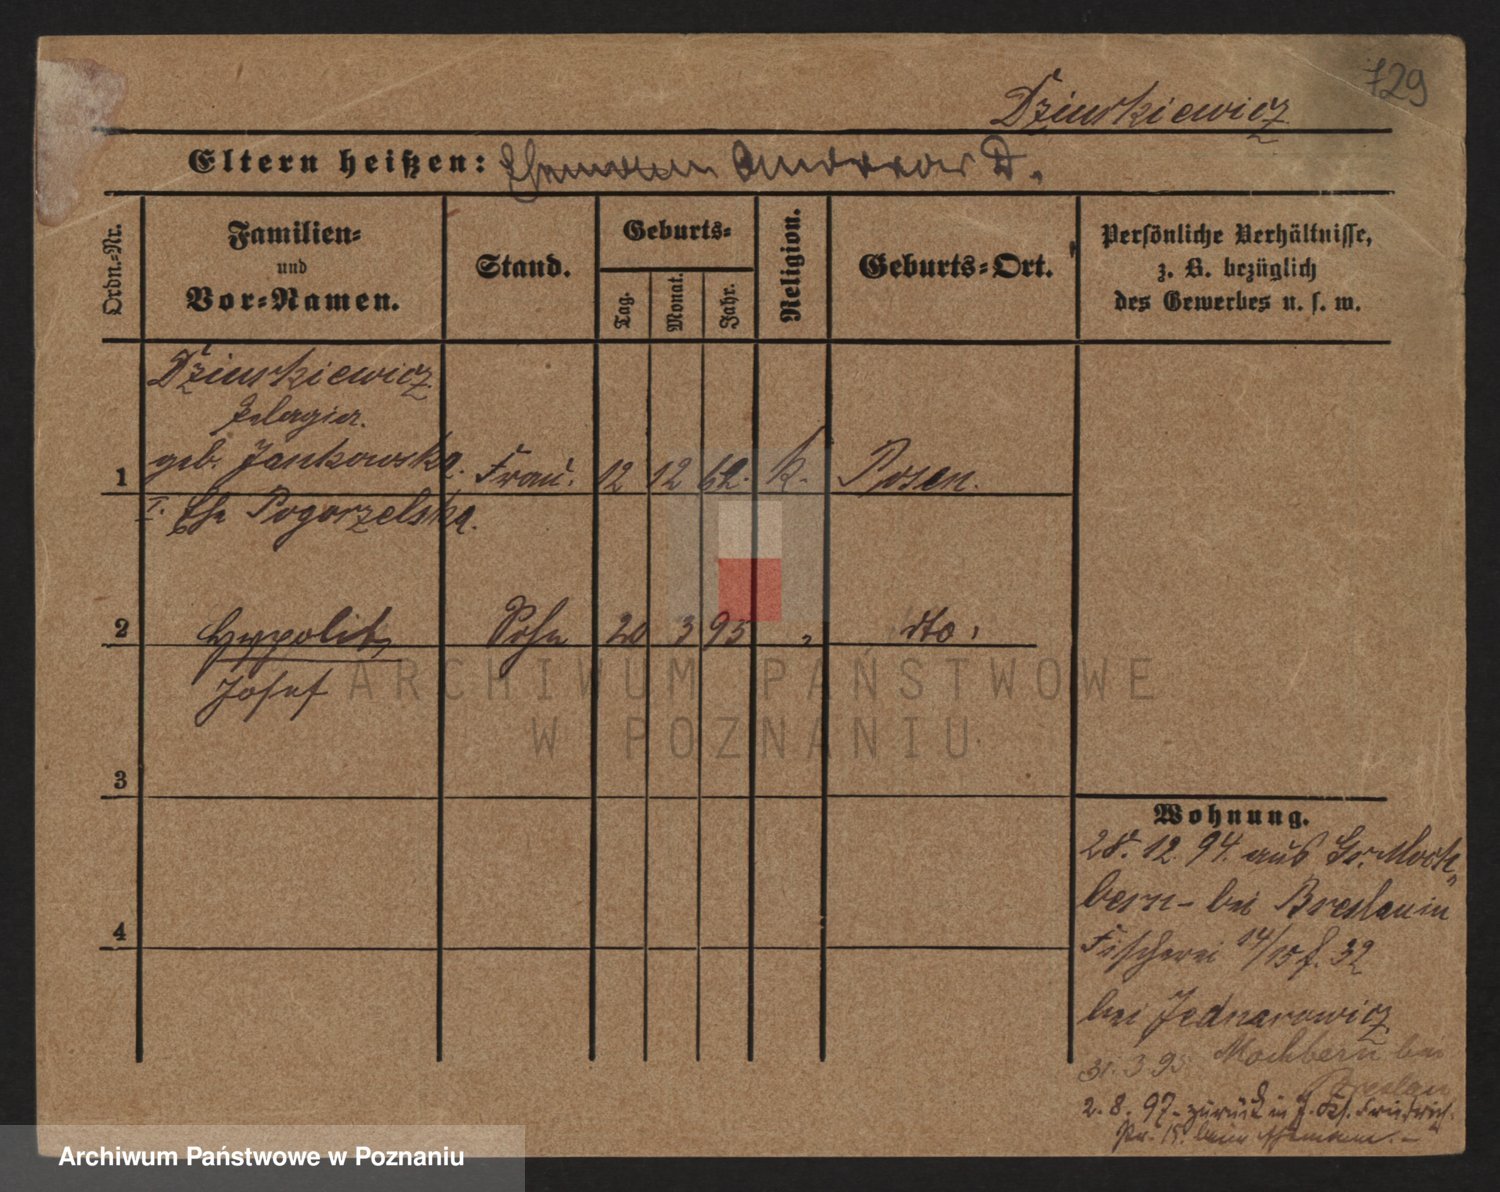 729
Dziurkiewicz
Eltern heißen: Ehemann Andreas D.
Ordn.-Nr.
Familien-
und
Vor-Namen.
Stand.
Geburts-
Tag.
Monat.
Jahr.
Religion.
Geburts-Ort.
Persönliche Verhältnisse,
z. B. bezüglich
des Gewerbes u. s. w.
Dziurkiewicz
Pelagia.
geb. Jankowska.
1 Frau. 12 12 62. k. Posen.
I. Ehe Pogorzelska.
2 Hypolit, Sohn 20 3 95 " dto.
Josef
3
4
Wohnung.
28. 12. 94. aus Gr. Moch-
bern - bei Breslau in
Fischerei 14/15 f. 32
bei Jednarowicz
31. 3 95 Mochbern bei
Breslau
2. 8. 97. zurück in Friedrich-
15. beim Ehemann. -
ARCHIWUM PAŃSTWOWE
W POZNANIU
Archiwum Państwowe w Poznaniu